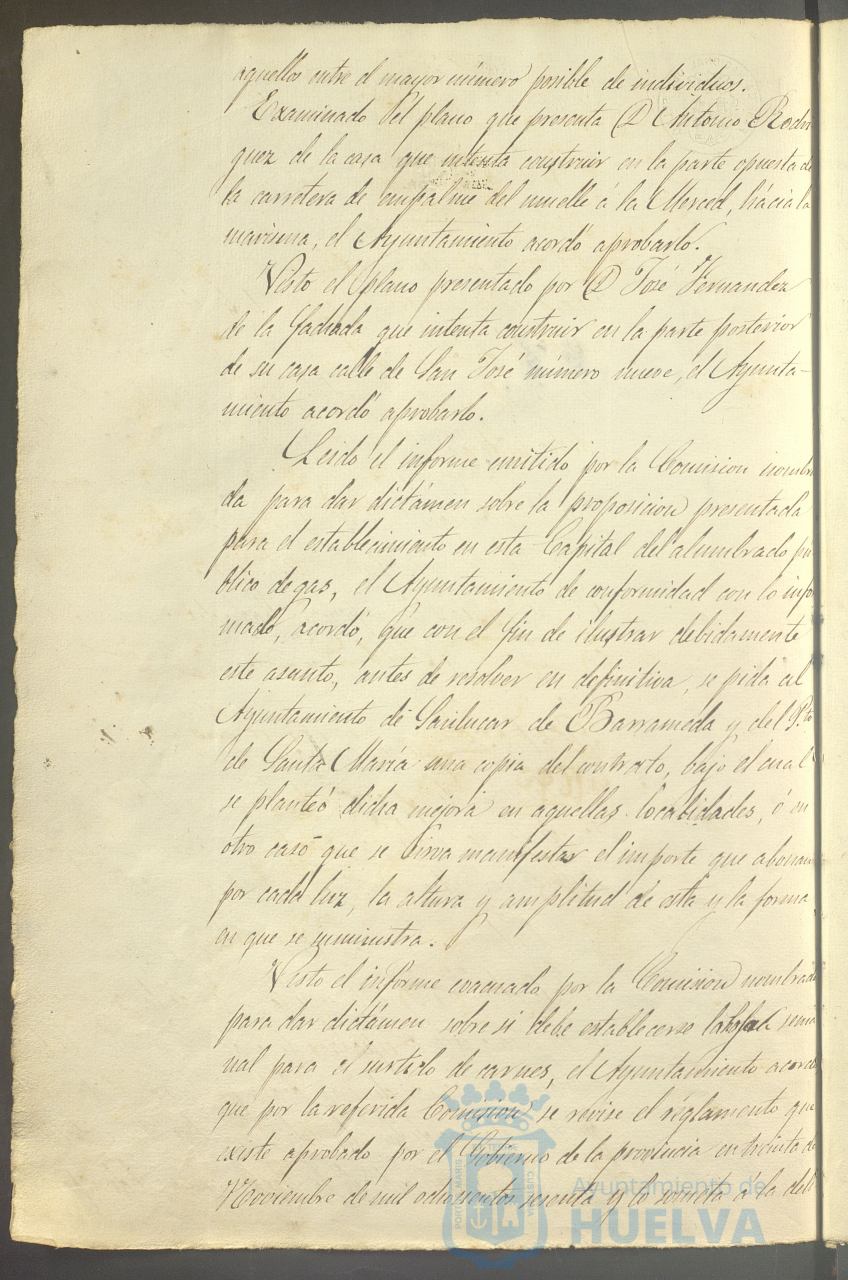 aquellos entre el mayor número posible de individuos.
Examinado el plano que presenta D Antonio Rodri
guez de la casa que intenta construir en la parte opuesta de
la carretera de empalme del muelle á la Merced, hácia la
marisma, el Ayuntamiento acordó aprobarlo.
Visto el plano presentado por D José Fernandez
de la fachada que intenta construir en la parte posterior
de su casa calle de San José número nueve, el Ayunta-
miento acordó aprobarlo.
Leido el informe emitido por la Comision nombra
da para dar dictámen sobre la proposicion presentada
para el establecimiento en esta Capital del alumbrado pú
blico de gas, el Ayuntamiento de conformidad con lo infor
mado, acordó, que con el fin de ilustrar debidamente
este asunto, antes de resolver en definitiva, se pida al
Ayuntamiento de Sanlucar de Barrameda y del Pto
de Santa María una copia del contrato, bajo el cual
se planteó dicha mejora en aquellas localidades, ó en
otro caso que se sirva manifestar el importe que abonan
por cada luz, la altura y amplitud de esta y la forma
en que se suministra.
Visto el informe evacuado por la Comision nombrada
para dar dictámen sobre si debe establecerse la sema
nal para el surtido de carnes, el Ayuntamiento acordó
que por la referida Comision se revise el reglamento que
existe aprobado por el Gobierno de la provincia en treinta de
Noviembre de mil ochocientos sesenta y lo someta á la deli
Ayuntamiento de
HUELVA